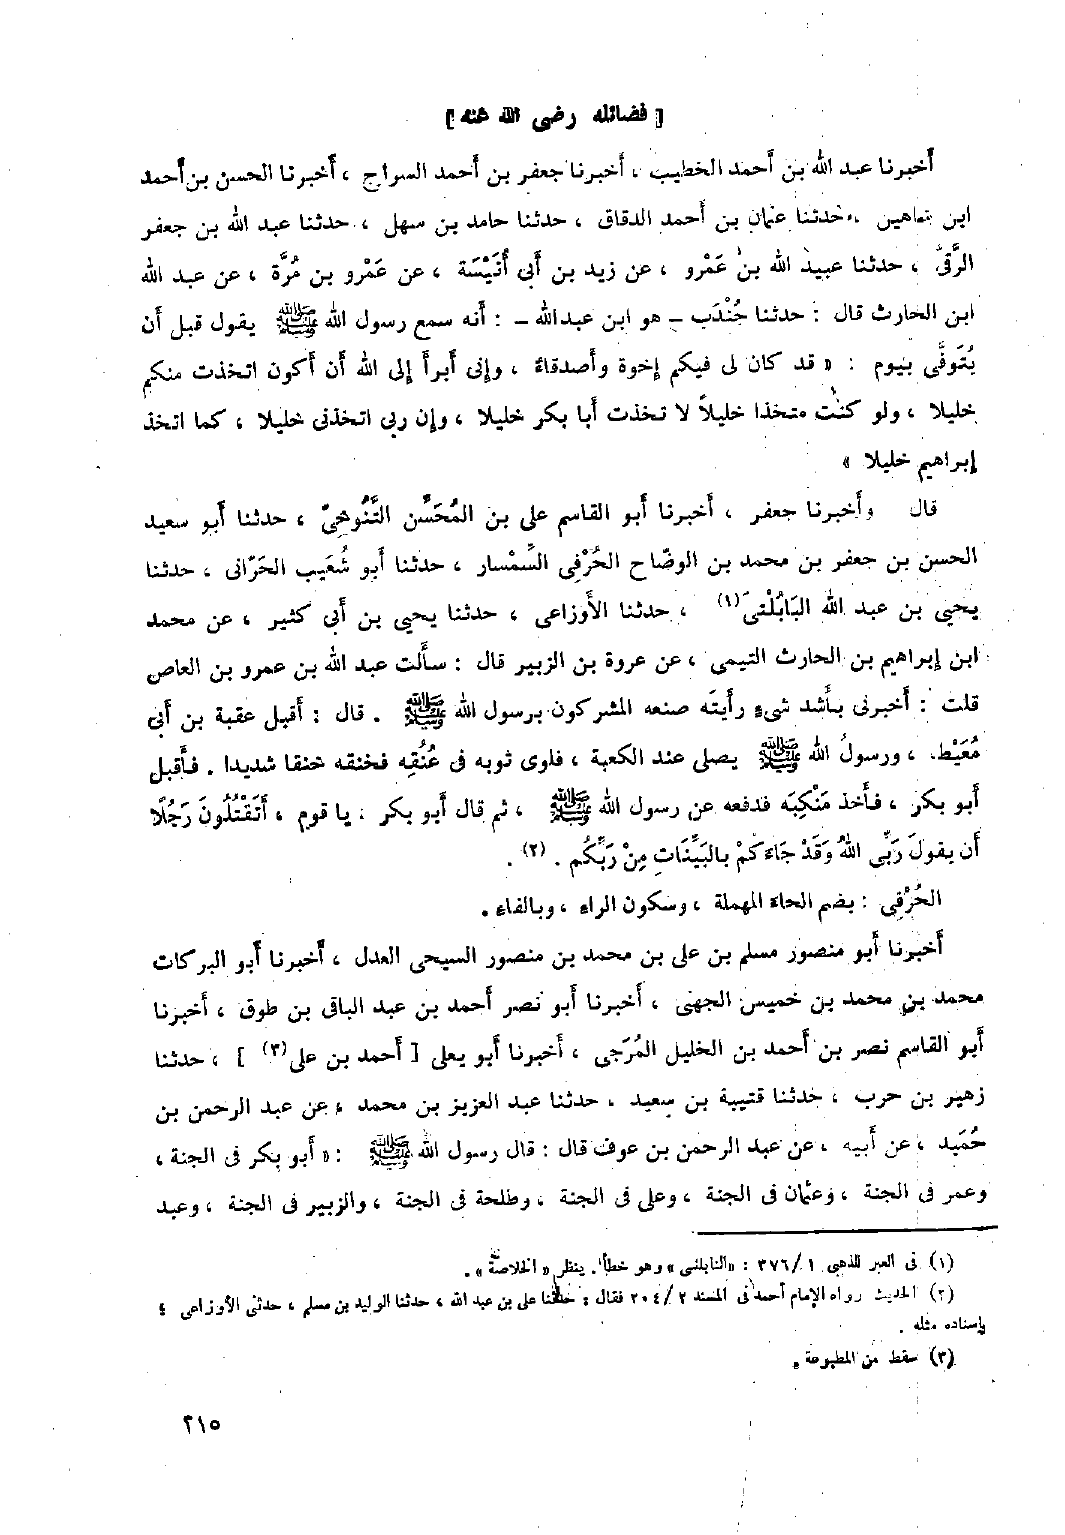 [ فضائله رضى الله عنه ]
أخبرنا عبد الله بن أحمد الخطيب ، أخبرنا جعفر بن أحمد السراج ، أخبرنا الحسن بن أحمد
ابن شاهين ، حدثنا عثمان بن أحمد الدقاق ، حدثنا حامد بن سهل ، حدثنا عبد الله بن جعفر
الرَّقىّ ، حدثنا عبيد الله بن عَمْرو ، عن زيد بن أبى أُنَيْسَة ، عن عَمْرو بن مُرَّة ، عن عبد الله
ابن الحارث قال : حدثنا جُنْدَب – هو ابن عبدالله – : أنه سمع رسول الله ﷺ يقول قبل أن
يُتَوفَّى بيوم : « قد كان لى فيكم إخوة وأصدقاءُ ، وإنى أبرأ إلى الله أن أكون اتخذت منكم
خليلا ، ولو كنت متخذا خليلاً لا تخذت أبا بكر خليلا ، وإن ربى اتخذنى خليلا ، كما اتخذ
إبراهيم خليلا »
قال وأخبرنا جعفر ، أخبرنا أبو القاسم على بن المُحَسِّن التَّنُوخِىّ ، حدثنا أبو سعيد
الحسن بن جعفر بن محمد بن الوضّاح الحُرْفِى السِّمْسار ، حدثنا أبو شُعَيب الحَرّانى ، حدثنا
يحيى بن عبد الله البَابُلْتىّ (١) ، حدثنا الأوزاعى ، حدثنا يحيى بن أبى كثير ، عن محمد
ابن إبراهيم بن الحارث التيمى ، عن عروة بن الزبير قال : سألت عبد الله بن عمرو بن العاص
قلت : أخبرنى بأشد شىءٍ رأيتَه صنعه المشركون برسول الله ﷺ . قال : أقبل عقبة بن أبى
مُعَيْط ، ورسولُ الله ﷺ يصلى عند الكعبة ، فلوى ثوبه فى عُنُقِه فخنقه خنقا شديدا . فأقبل
أبو بكر ، فأخذ مَنْكِبَه فدفعه عن رسول الله ﷺ ، ثم قال أبو بكر : يا قوم ، أَتَقْتُلُونَ رَجُلًا
أن يقولَ رَبِّى اللهُ وَقَدْ جَاءَكمْ بالبَيِّنَاتِ مِنْ رَبِّكُم . (٢) .
الحُرْفِى : بضم الحاءِ المهملة ، وسكون الراءِ ، وبالفاءِ .
أخبرنا أبو منصور مسلم بن على بن محمد بن منصور السيحى العدل ، أخبرنا أبو البركات
محمد بن محمد بن خميس الجهنى ، أخبرنا أبو نصر أحمد بن عبد الباقى بن طوق ، أخبرنا
أبو القاسم نصر بن أحمد بن الخليل المُرَجى ، أخبرنا أبو يعلى [ أحمد بن على (٣) ] ، حدثنا
زهير بن حرب ، حدثنا قتيبة بن سعيد ، حدثنا عبد العزيز بن محمد ، عن عبد الرحمن بن
حُمَيد ، عن أبيه ، عن عبد الرحمن بن عوف قال : قال رسول الله ﷺ : « أبو بكر فى الجنة ،
وعمر فى الجنة ، وعثمان فى الجنة ، وعلى فى الجنة ، وطلحة فى الجنة ، والزبير فى الجنة ، وعبد
(١) فى العبر للذهبى ١/٣٧٦ : «النابلتى» وهو خطأ. ينظر «الخلاصة» .
(٢) الحديث رواه الإمام أحمد فى المسند ٢/٢٠٤ فقال : حدثنا على بن عبد الله ، حدثنا الوليد بن مسلم ، حدثنى الأوزاعى ؛
بإسناده مثله .
(٣) سقط من المطبوعة .
٣١٥